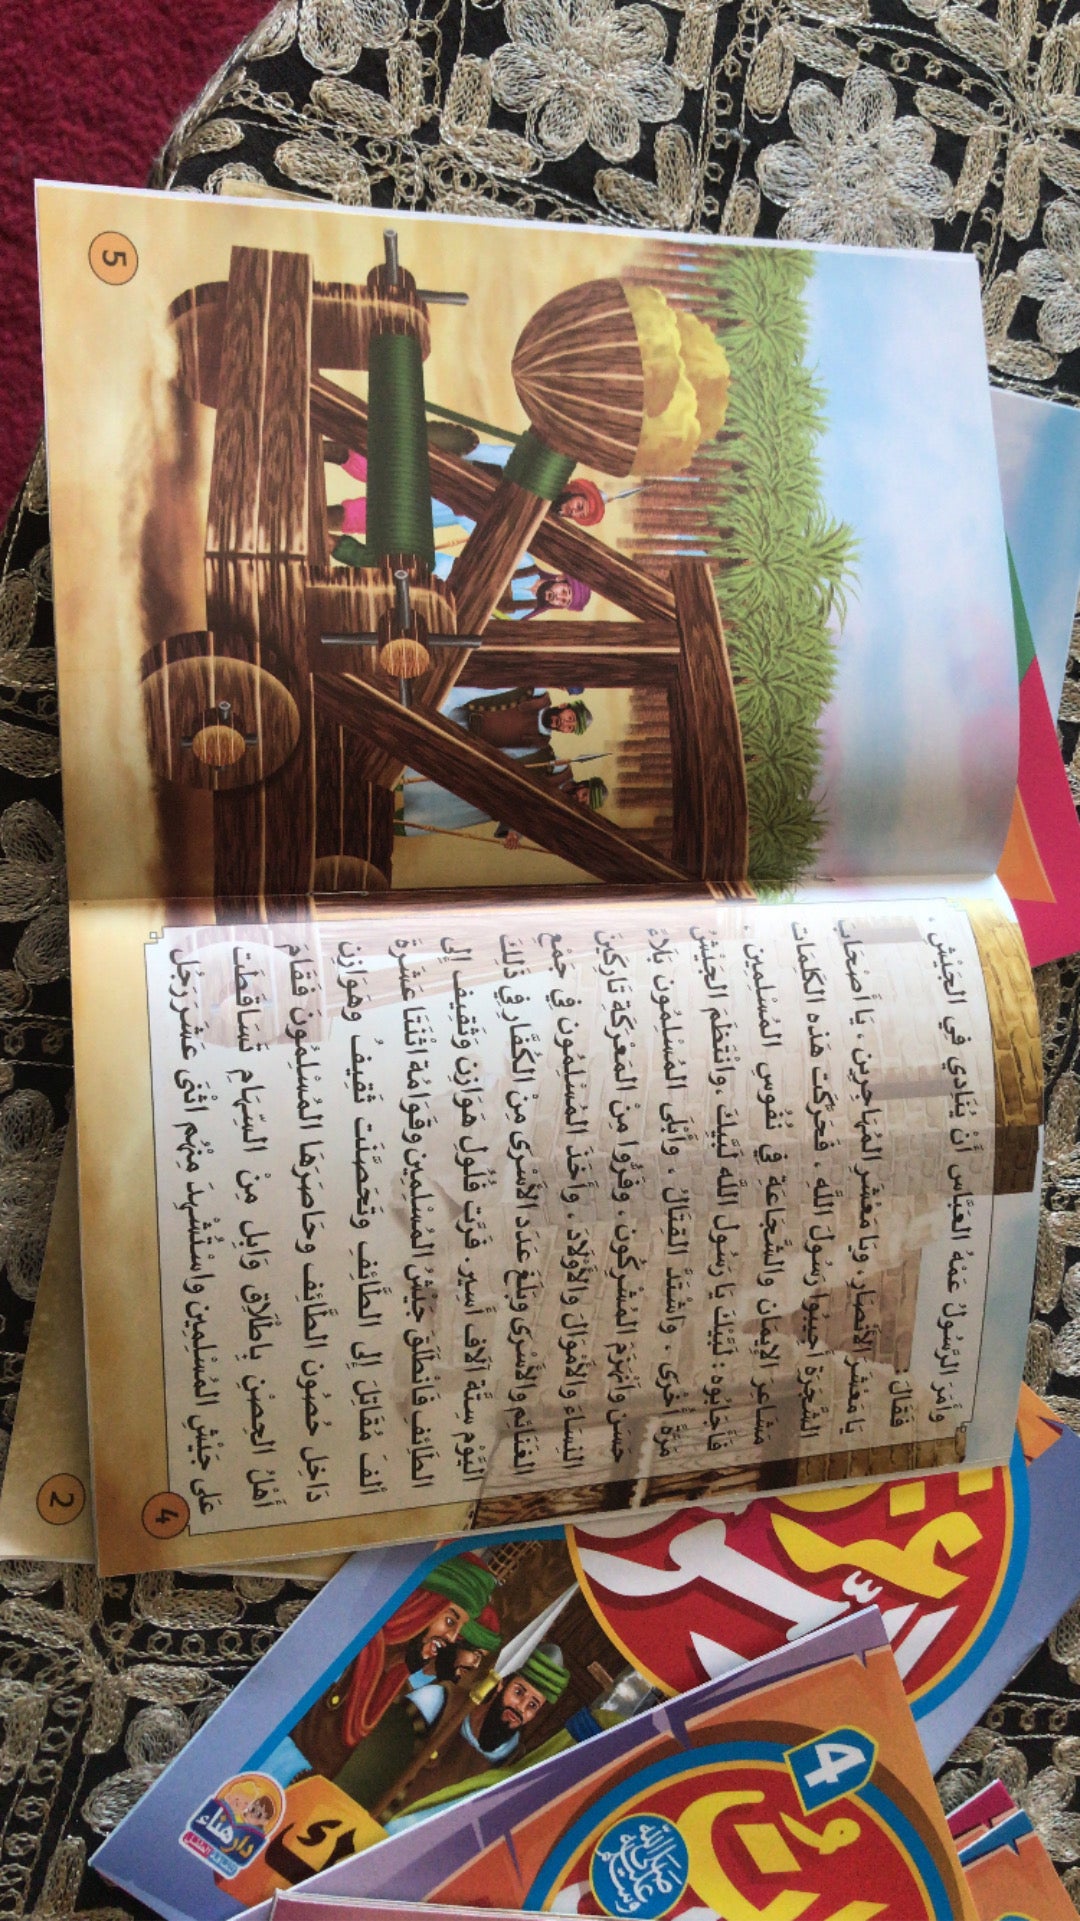 وأَمَرَ الرَّسُولُ عَمَّهُ العَبَّاسَ أَنْ يُنَادِي فِي الجَيْشِ ،
فَقَالَ :
يَا مَعْشَرَ الأَنْصَارِ ، وَيَا مَعْشَرَ المُهَاجِرِين ، يَا أَصْحَابَ
الشَّجَرَةِ أَجِيبُوا رَسُولَ اللَّهِ ، فَحَرَّكَت هَذِه الكَلِمَات
مَشَاعِرَ الإِيمَان والشَّجَاعَةِ فِي نُفُوسِ المُسْلِمِين ،
فَأَجَابُوه : لَبَّيْكَ يَا رَسُول اللَّه لَبَّيكَ ، وانْتَظَمَ الجَيْشُ
مَرَّةً أُخْرى ، واشْتَدَّ القِتَالُ ، وَأَبْلَى المُسْلِمُون بَلَاءً
حَسَن وَانْهَزَمَ المُشْرِكُون ، وَفَرُّوا مِنْ المَعْرَكَةِ تَارِكِينَ
النِّسَاءَ والأَمْوَالَ والأَوْلَادَ ، وأَخَذَ المُسْلِمُون فِي جَمْعِ
الغَنَائِم والأَسْرَى وبَلَغَ عَدَد الأَسْرَى مِنْ الكُفَّارِ فِي ذَلِكَ
اليَوْم سِتَّة آلَاف أَسِير. فَرَّت فُلُولِ هَوَازِن وَثَقِيف إِلى
الطَّائِفِ فَانْطَلَقَ جَيْشُ المُسْلِمِين وقوَامُهُ اثْنَتَا عَشَرَةَ
أَلفَ مُقَاتِلَ إِلى الطَّائِفِ وتَحَصَّنَت ثَقِيفُ وهَوَازِن
دَاخِل حُصُون الطَّائِف وحَاصَرَهَا المُسْلِمُونَ فَقَامَ
أَهْلُ الحِصْنِ بِاطْلَاقِ وَابِل مِنْ السِّهَامِ تَسَاقَطَت
عَلى جَيْشِ المُسْلِمِين واسْتُشْهِدَ مِنْهُم اثْنَى عَشَرَ رَجُل
4
5
2
4
صلى الله عليه وسلم
دار هناء